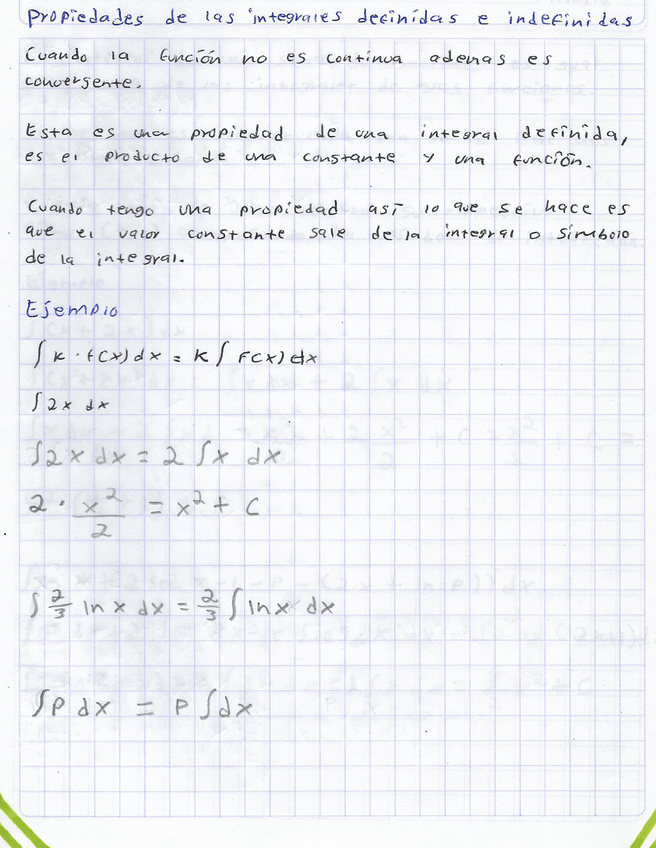 Propiedades de las integrales definídas e indefinidas
Cuando la función no es continua ademas es
convergente.
Esta es una propiedad de una integral definida,
es el producto de una constante y una función.
Cuando tengo una propiedad así lo que se hace es
que el valor constante sale de la integral o simbolo
de la integral.
Ejemplo
∫ K · f(x) dx = K ∫ F(x) dx
∫ 2x dx
∫ 2x dx = 2 ∫ x dx
2 · x²/2 = x² + C
∫ 2/3 ln x dx = 2/3 ∫ ln x dx
∫ P dx = P ∫ dx